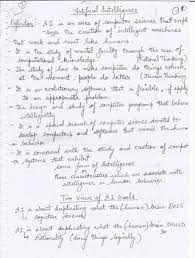 Artificial Intelligence
Definition - AI is an area of computer science that emph
asizes the creation of intelligent machines
that work and react like humans
→ It is the study of mental faculty through the use of
computational models (Rational Thinking)
→ The study of how to make computers do things which
at the moment, people do better (Human Thinking
→ It is an evolutionary software that is feasible, if apply
to an appropriate problem.
→ The design and study of computer programs that behave
intelligently.
→ It is a special branch of computer science devoted to
develop computers and software that mimic the human
→ It is concerned with the study and creation of comput
er systems that exhibit
some form of Intelligence
Those characteristics which we associate with
intelligence in human behavior.
Two Views of AI Goals
AI is about duplicating what the (human) brain DOES
(cognitive Science)
AI is about duplicating what the (human) brain SHOULD
Rationality (doing things logically)